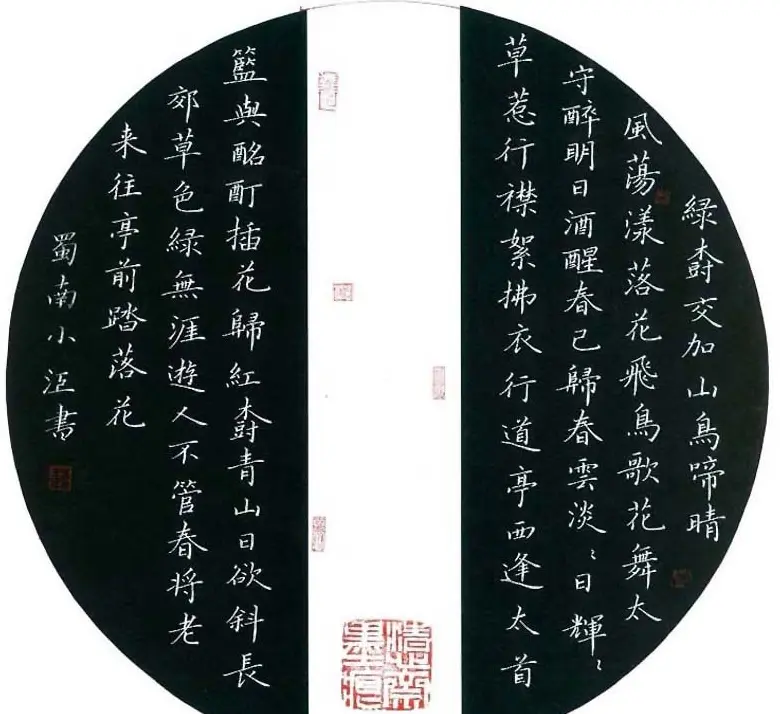 綠樹交加山鳥啼晴
風蕩漾落花飛鳥歌花舞太
守醉明日酒醒春已歸春雲淡〻日輝〻
草惹行襟絮拂衣行道亭西逢太首
籃與酩酊插花歸紅樹青山日欲斜長
郊草色綠無涯遊人不管春將老
来往亭前踏落花
蜀南小書